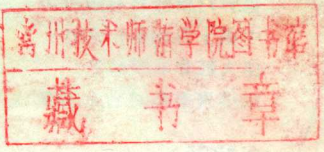 常州技术师范学院图书馆
藏书章